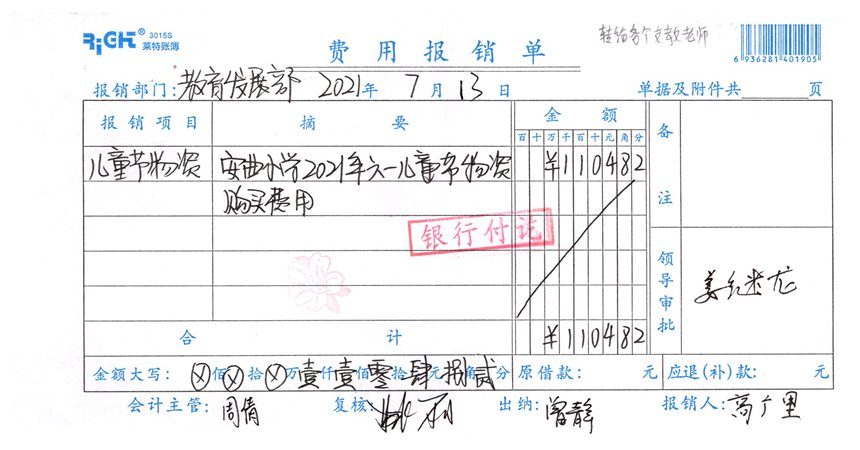 RiCH® 3015S
莱特账簿
转给各个文教老师
费用报销单
6 936281 401905
报销部门:教育发展部 2021年 7月 13日 单据及附件共 页
报销项目 摘要 金额 备注
百十万千百十元角分
儿童节物资 安曲小学2021年六一儿童节物资 ¥110482
购买费用
银行付讫
领导审批
合计 ¥110482
金额大写: ⊗佰⊗拾⊗万壹仟壹佰零拾肆元捌角贰分 原借款: 元 应退(补)款: 元
会计主管: 周倩 复核: 出纳: 曾静 报销人: 高广里